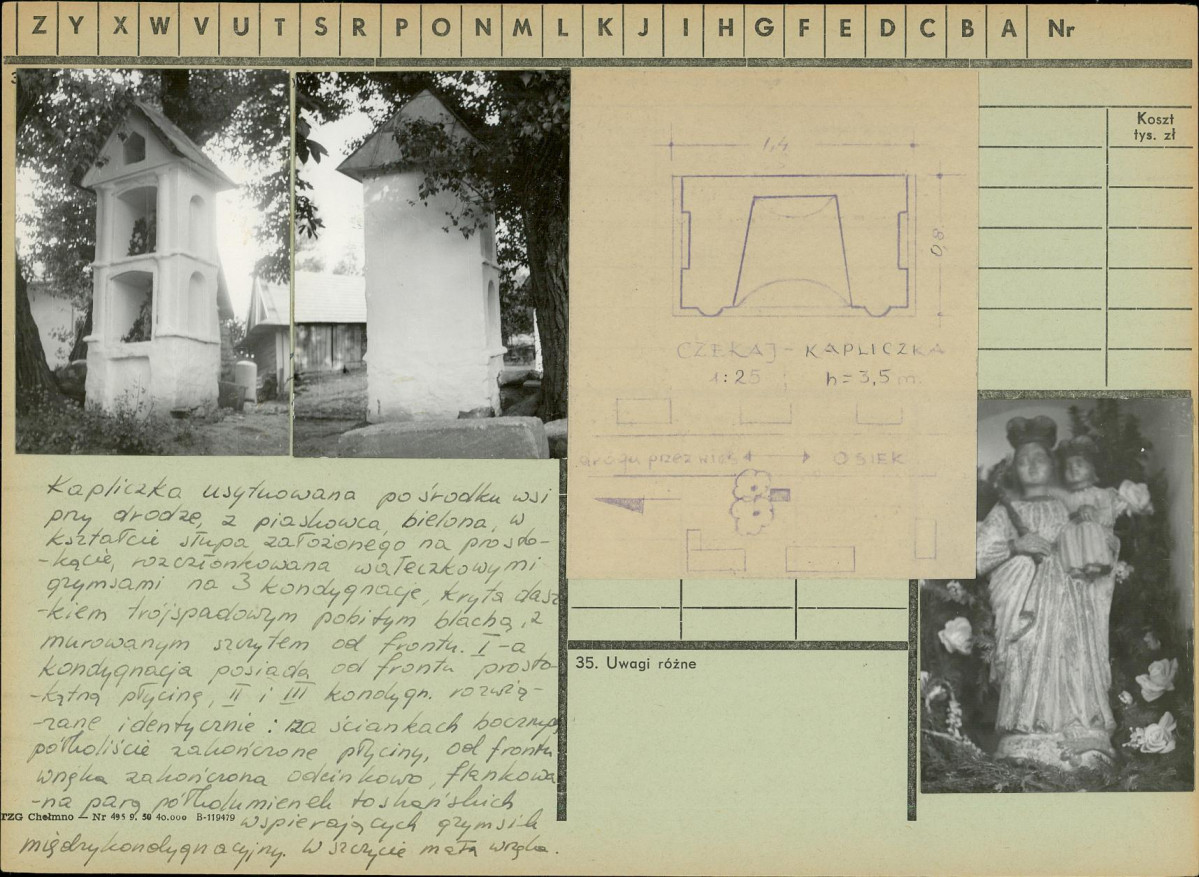 Z Y X W V U T S R P O N M L K J I H G F E D C B A Nr
Koszt
tys. zł
1,4
0,8
CZEKAJ - KAPLICZKA
1:25 h = 3,5 m.
droga przez wieś OSIEK
Kapliczka usytuowana pośrodku wsi
przy drodze, z piaskowca, bielona, w
kształcie słupa założonego na prosto-
-kącie, rozczłonkowana wałeczkowymi
gzymsami na 3 kondygnacje, kryta dasz
-kiem trójspadowym pobitym blachą, z
murowanym szczytem od frontu. I-a
kondygnacja posiada od frontu prosto-
-kątną płycinę, II i III kondygn. rozwią-
-zane identycznie: na ściankach bocznych
półkoliście zakończone płyciny, od frontu
wnęka zakończona odcinkowo, flankowa
-na parą półkolumienek toskańskich
wspierających gzymsik
międzykondygnacyjny. W szczycie mała wnęka.
35. Uwagi różne
TZG Chełmno — Nr 495 9. 59 40.000 B-119479